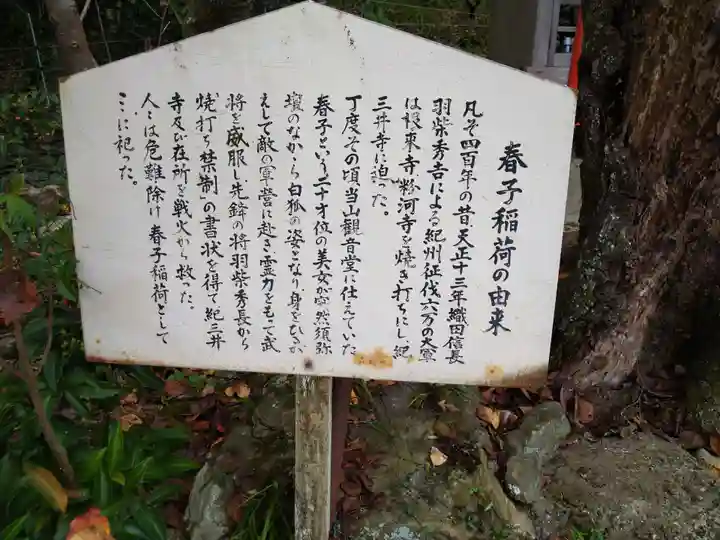 春子稲荷の由来
凡そ四百年の昔、天正十三年織田信長
羽柴秀吉による紀州征伐六万の大軍
は根来寺粉河寺を焼き打ちにし紀
三井寺に迫った。
丁度その頃当山観音堂に仕えていた
春子という二十才位の美女が突然須弥
壇のなかから白狐の姿となり身をひるが
えして敵の軍営に赴き霊力をもって武
将を威服し先鋒の将羽柴秀長から
「焼打ち禁制」の書状を得て紀三井
寺及び在所を戦火から救った。
人々は危難除け春子稲荷として
ここに祀った。